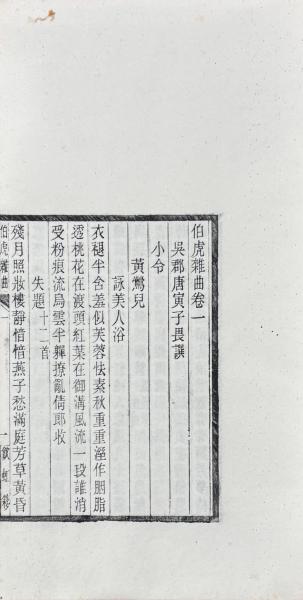 伯虎雜曲卷一
吳郡唐寅子畏譔
小令
黃鶯兒
詠美人浴
衣褪半含羞似芙蓉怯素秋重重溼作胭脂
透桃花在渡頭紅葉在御溝風流一段誰消
受粉痕流烏雲半嚲撩亂倩郎收
失題十二首
殘月照妝樓靜愔愔燕子愁滿庭芳草黃昏
伯虎雜曲
一